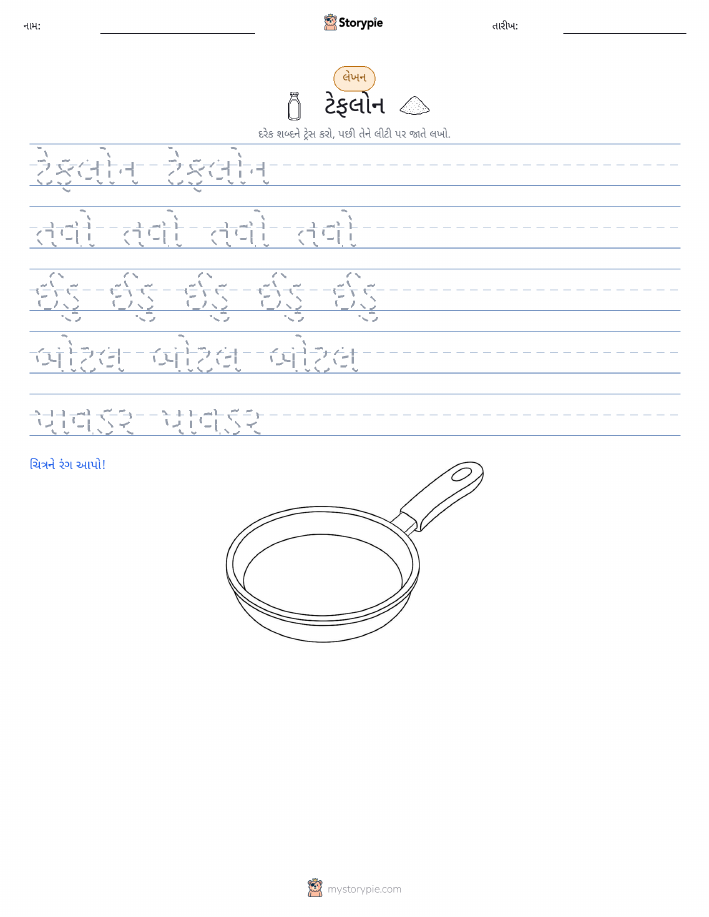 નામ:
Storypie
તારીખ:
લેખન
ટેફલોન
દરેક શબ્દને ટ્રેસ કરો, પછી તેને લીટી પર જાતે લખો.
ટેફલોન ટેફલોન
તવો તવો તવો તવો
ઈંડુ ઈંડુ ઈંડુ ઈંડુ ઈંડુ
બોટલ બોટલ બોટલ
પાવડર પાવડર
ચિત્રને રંગ આપો!
mystorypie.com